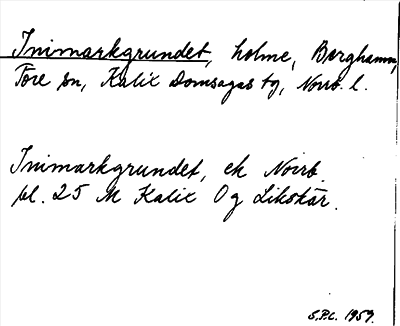 Inimarkgrundet, holme, Berghamn,
Töre sn, Kalix Domsagas tg, Norrb. l.
Inimarkgrundet, ek Norrb.
bl. 25 M Kalix Og Likskär.
S.P.C. 1959.